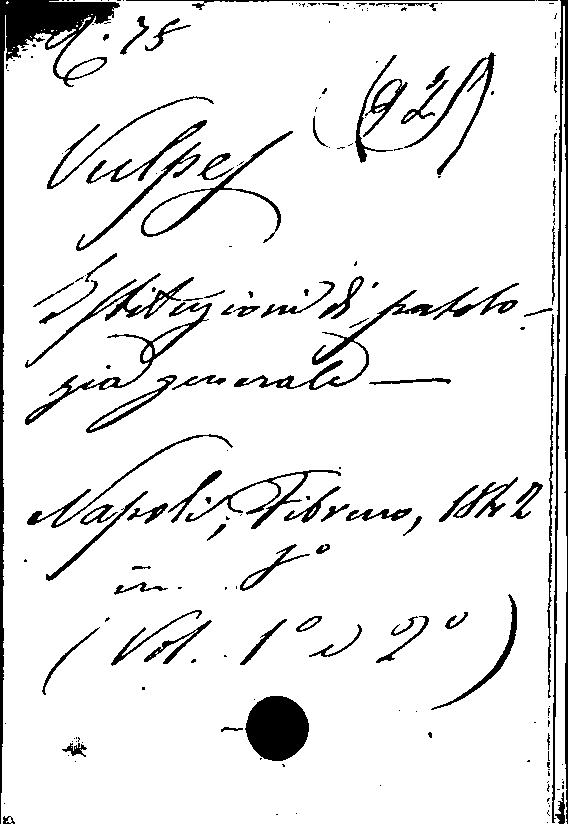 75
Vulpes
Istituzioni di patolo-
gia generale —
Napoli, Fibreno, 1842
in
(Vol. 1° e 2°)